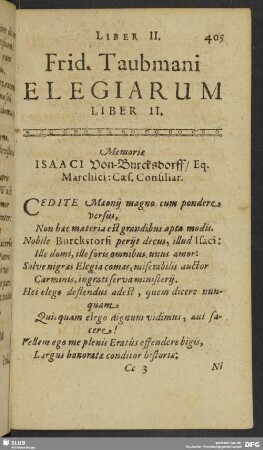 LIBER II. 405
Frid. Taubmani
ELEGIARUM
LIBER II.
Memoriæ
ISAACI Von-Burcksdorff/ Eq.
Marchici: Cæs. Consiliar.
CEDITE Mæonij magno cum pondere
versus,
Non hæc materia est grandibus apta modis.
Nobile Burckstorfi perijt decus, illud Isaci:
Ille domi, ille foris omnibus unus amor.
Solve nigras Elegia comas, miserabilis auctor
Carminis, ingrati serva ministerij.
Hei elego deflendus adest, quem dicere nun-
quam
Quisquam elego dignum vidimus, aut fa-
cere!
Vectem ego me plenis Eratûs effendere bigis,
Largus honoratæ conditor historiæ;
Cc 3 Ni
SLUB
DFG